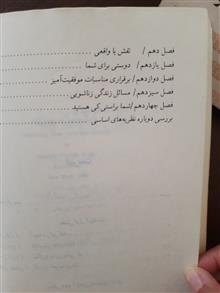 فصل دهم / نقش یا واقعی
فصل یازدهم / دوستی برای شما
فصل دوازدهم / برقراری مناسبات موفقیت‌آمیز
فصل سیزدهم / مسائل زندگی زناشویی
فصل چهاردهم / شما براستی کی هستید
بررسی دوباره نظریه‌های اساسی